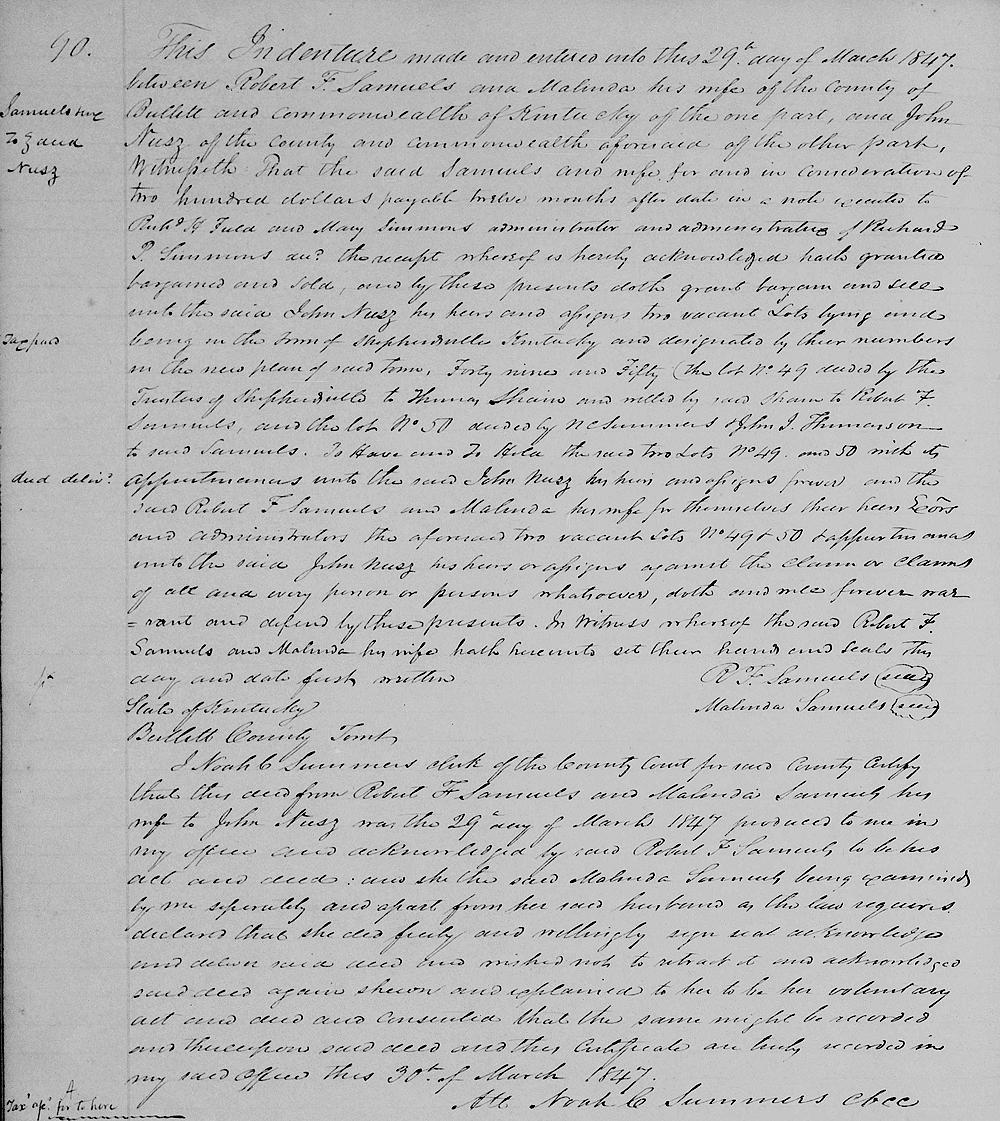 90.
This Indenture made and entered into this 29th day of March 1847.
between Robert F. Samuels and Malinda his wife of the County of
Samuels &
Bullitt and commonwealth of Kentucky of the one part, and John
To } deed
Nusz of the County and commonwealth aforesaid of the other part,
Nusz
Witnesseth That the said Samuels and wife for and in consideration of
two hundred dollars payable twelve months after date in a note executed to
Richd H Field and Mary Simmons administrator and administratrix of Richard
P. Simmons decd the receipt whereof is hereby acknowledged hath granted
bargained and sold, and by these presents doth grant bargain and sell
unto the said John Nusz his heirs and assigns two vacant Lots lying and
Tax paid
being in the town of Shepherdsville Kentucky and designated by their numbers
in the new plan of said town, Forty nine and Fifty (the lot No. 49 deeded by the
Trustees of Shepherdsville to Thomas Shain and willed by said Shain to Robert F.
Samuels, and the lot No 50 deeded by N C Summers & John J. Thomasson
to said Samuels. To Have and To Hold the said two Lots No 49. and 50 with its
deed delivd
appurtenances unto the said John Nusz his heirs and assigns forever and the
said Robert F Samuels and Malinda his wife for themselves their heirs Exōrs
and administrators the aforesaid two vacant Lots No 49 & 50 & appurtenances
unto the said John Nusz his heirs or assigns against the claim or claims
of all and every person or persons whatsoever, doth and will forever war
=rant and defend by these presents. In Witness whereof the said Robert F.
Samuels and Malinda his wife hath hereunto set their hands and seals this
day and date first written R F. Samuels (seal)
State of Kentucky Malinda Samuels (seal)
Bullitt County Towit
I Noah C Summers clerk of the County Court for said County certify
that this deed from Robert F Samuels and Malinda Samuels his
wife to John Nusz was the 29th day of March 1847 produced to me in
my office and acknowledged by said Robert F Samuels to be his
act and deed: and she the said Malinda Samuels being examined
by me seperately and apart from her said husband as the law requires
declared that she did freely and willingly sign seal acknowledge
and deliver said deed and wished not to retract it and acknowledged
said deed again shewn and explained to her to be her voluntary
act and deed and consented that the same might be recorded
and thereupon said deed and this certificate are truly recorded in
my said office this 30th of March 1847.
Att Noah C Summers cbcc
for to here